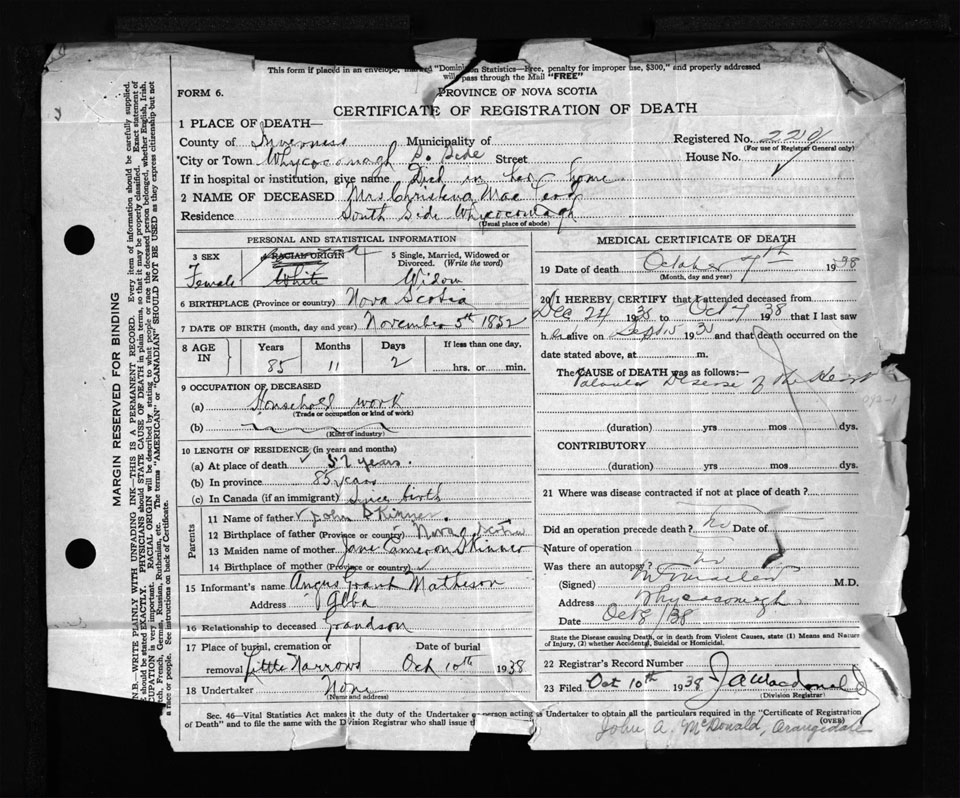 This form if placed in an envelope, marked "Dominion Statistics—Free, penalty for improper use, $300," and properly addressed
will pass through the Mail "FREE"
FORM 6.
PROVINCE OF NOVA SCOTIA
CERTIFICATE OF REGISTRATION OF DEATH
1 PLACE OF DEATH—
County of Inverness Municipality of Registered No. 229
(For use of Registrar General only)
*City or Town Whycocomagh S. Side Street House No.
If in hospital or institution, give name Died in her home
2 NAME OF DECEASED Mrs Christena Mac Leod
Residence South Side Whycocomagh
(Usual place of abode)
PERSONAL AND STATISTICAL INFORMATION
3 SEX RACIAL ORIGIN 5 Single, Married, Widowed or
Divorced. (Write the word)
Female White Widow
6 BIRTHPLACE (Province or country) Nova Scotia
7 DATE OF BIRTH (month, day and year) November 5th 1852
8 AGE IN Years Months Days If less than one day,
85 11 2 hrs. or min.
9 OCCUPATION OF DECEASED
(a) Household work
(Trade or occupation or kind of work)
(b)
(Kind of industry)
10 LENGTH OF RESIDENCE (in years and months)
(a) At place of death 57 years.
(b) In province 85 years
(c) In Canada (if an immigrant) since birth
Parents
11 Name of father John Skinner.
12 Birthplace of father (Province or country) Nova Scotia
13 Maiden name of mother Jane Cameron Skinner
14 Birthplace of mother (Province or country)
15 Informant's name Angus Grant Matheson
Address Alba
16 Relationship to deceased Grandson
17 Place of burial, cremation or Date of burial
removal Little Narrows Oct 10th 1938
18 Undertaker None
(Name and address)
MEDICAL CERTIFICATE OF DEATH
19 Date of death October 7th 1938
(Month, day and year)
20 I HEREBY CERTIFY that I attended deceased from
Dec 24 1938 to Oct 7 1938 that I last saw
h alive on Sept 15 193 and that death occurred on the
date stated above, at m.
The CAUSE of DEATH was as follows:—
Valvular Disease of the Heart
(duration) yrs mos dys.
CONTRIBUTORY
(duration) yrs mos dys.
21 Where was disease contracted if not at place of death?
Did an operation precede death? no Date of
Nature of operation
Was there an autopsy? no
(Signed) M.D.
Address Whycocomagh.
Date Oct 8/38
State the Disease causing Death, or in death from Violent Causes, state (1) Means and Nature
of Injury, (2) whether Accidental, Suicidal or Homicidal.
22 Registrar's Record Number
23 Filed Oct 10th 1938 J A Macdonald
(Division Registrar)
Sec. 46—Vital Statistics Act makes it the duty of the Undertaker or person acting as Undertaker to obtain all the particulars required in the "Certificate of Registration
of Death" and to file the same with the Division Registrar who shall issue
(OVER)
John A. McDonald, Orangedale
MARGIN RESERVED FOR BINDING
N.B.—WRITE PLAINLY WITH UNFADING INK—THIS IS A PERMANENT RECORD. Every item of information should be carefully supplied.
should be stated EXACTLY. PHYSICIANS should STATE CAUSE OF DEATH in plain terms, so that it may be properly classified. Exact statement of
OCCUPATION is very important. RACIAL ORIGIN will be described by stating to what people or race the deceased person belonged, whether English, Irish,
Scotch, French, German, Russian, Ruthenian, etc. The terms "AMERICAN" or "CANADIAN" SHOULD NOT BE USED as they express citizenship but not
a race or people. See instructions on back of Certificate.